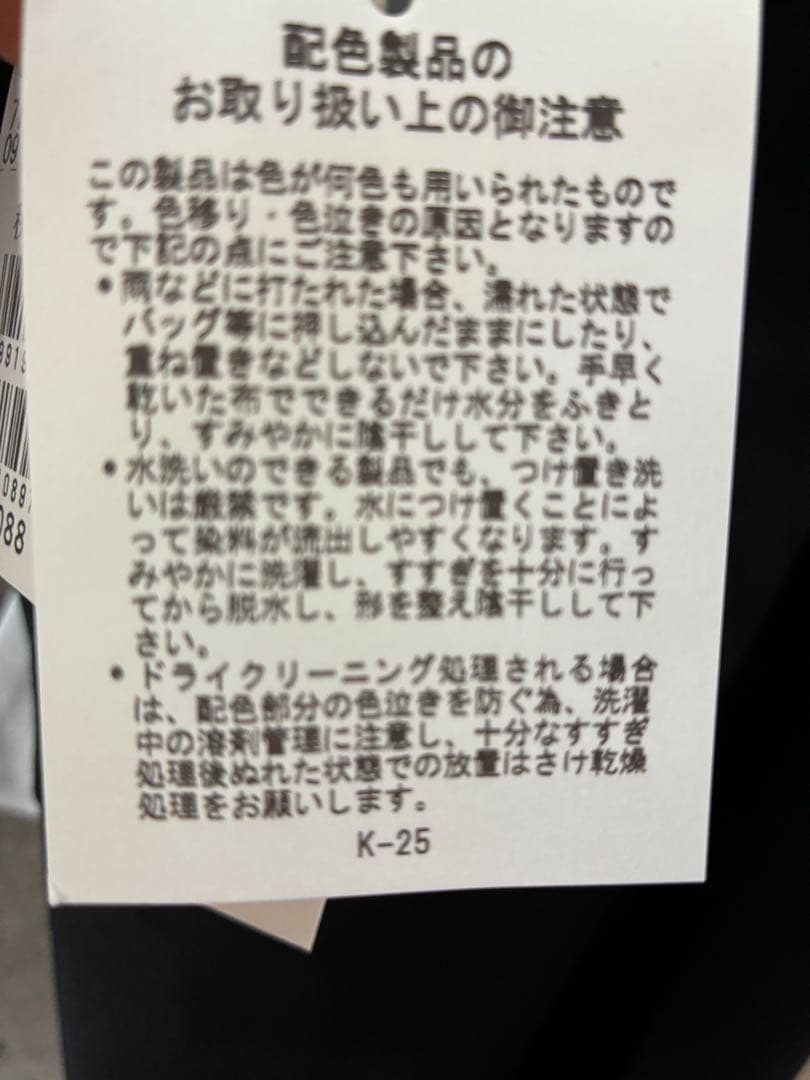 配色製品の
お取り扱い上の御注意
この製品は色が何色も用いられたもので
す。色移り・色泣きの原因となりますの
で下記の点にご注意下さい。
•雨などに打たれた場合、濡れた状態で
バッグ等に押し込んだままにしたり、
重ね置きなどしないで下さい。手早く
乾いた布でできるだけ水分をふきと
り、すみやかに陰干しして下さい。
•水洗いのできる製品でも、つけ置き洗
いは厳禁です。水につけ置くことによ
って染料が流出しやすくなります。す
みやかに洗濯し、すすぎを十分に行っ
てから脱水し、形を整え陰干しして下
さい。
•ドライクリーニング処理される場合
は、配色部分の色泣きを防ぐ為、洗濯
中の溶剤管理に注意し、十分なすすぎ
処理後ぬれた状態での放置はさけ乾燥
処理をお願いします。
K-25
09
088